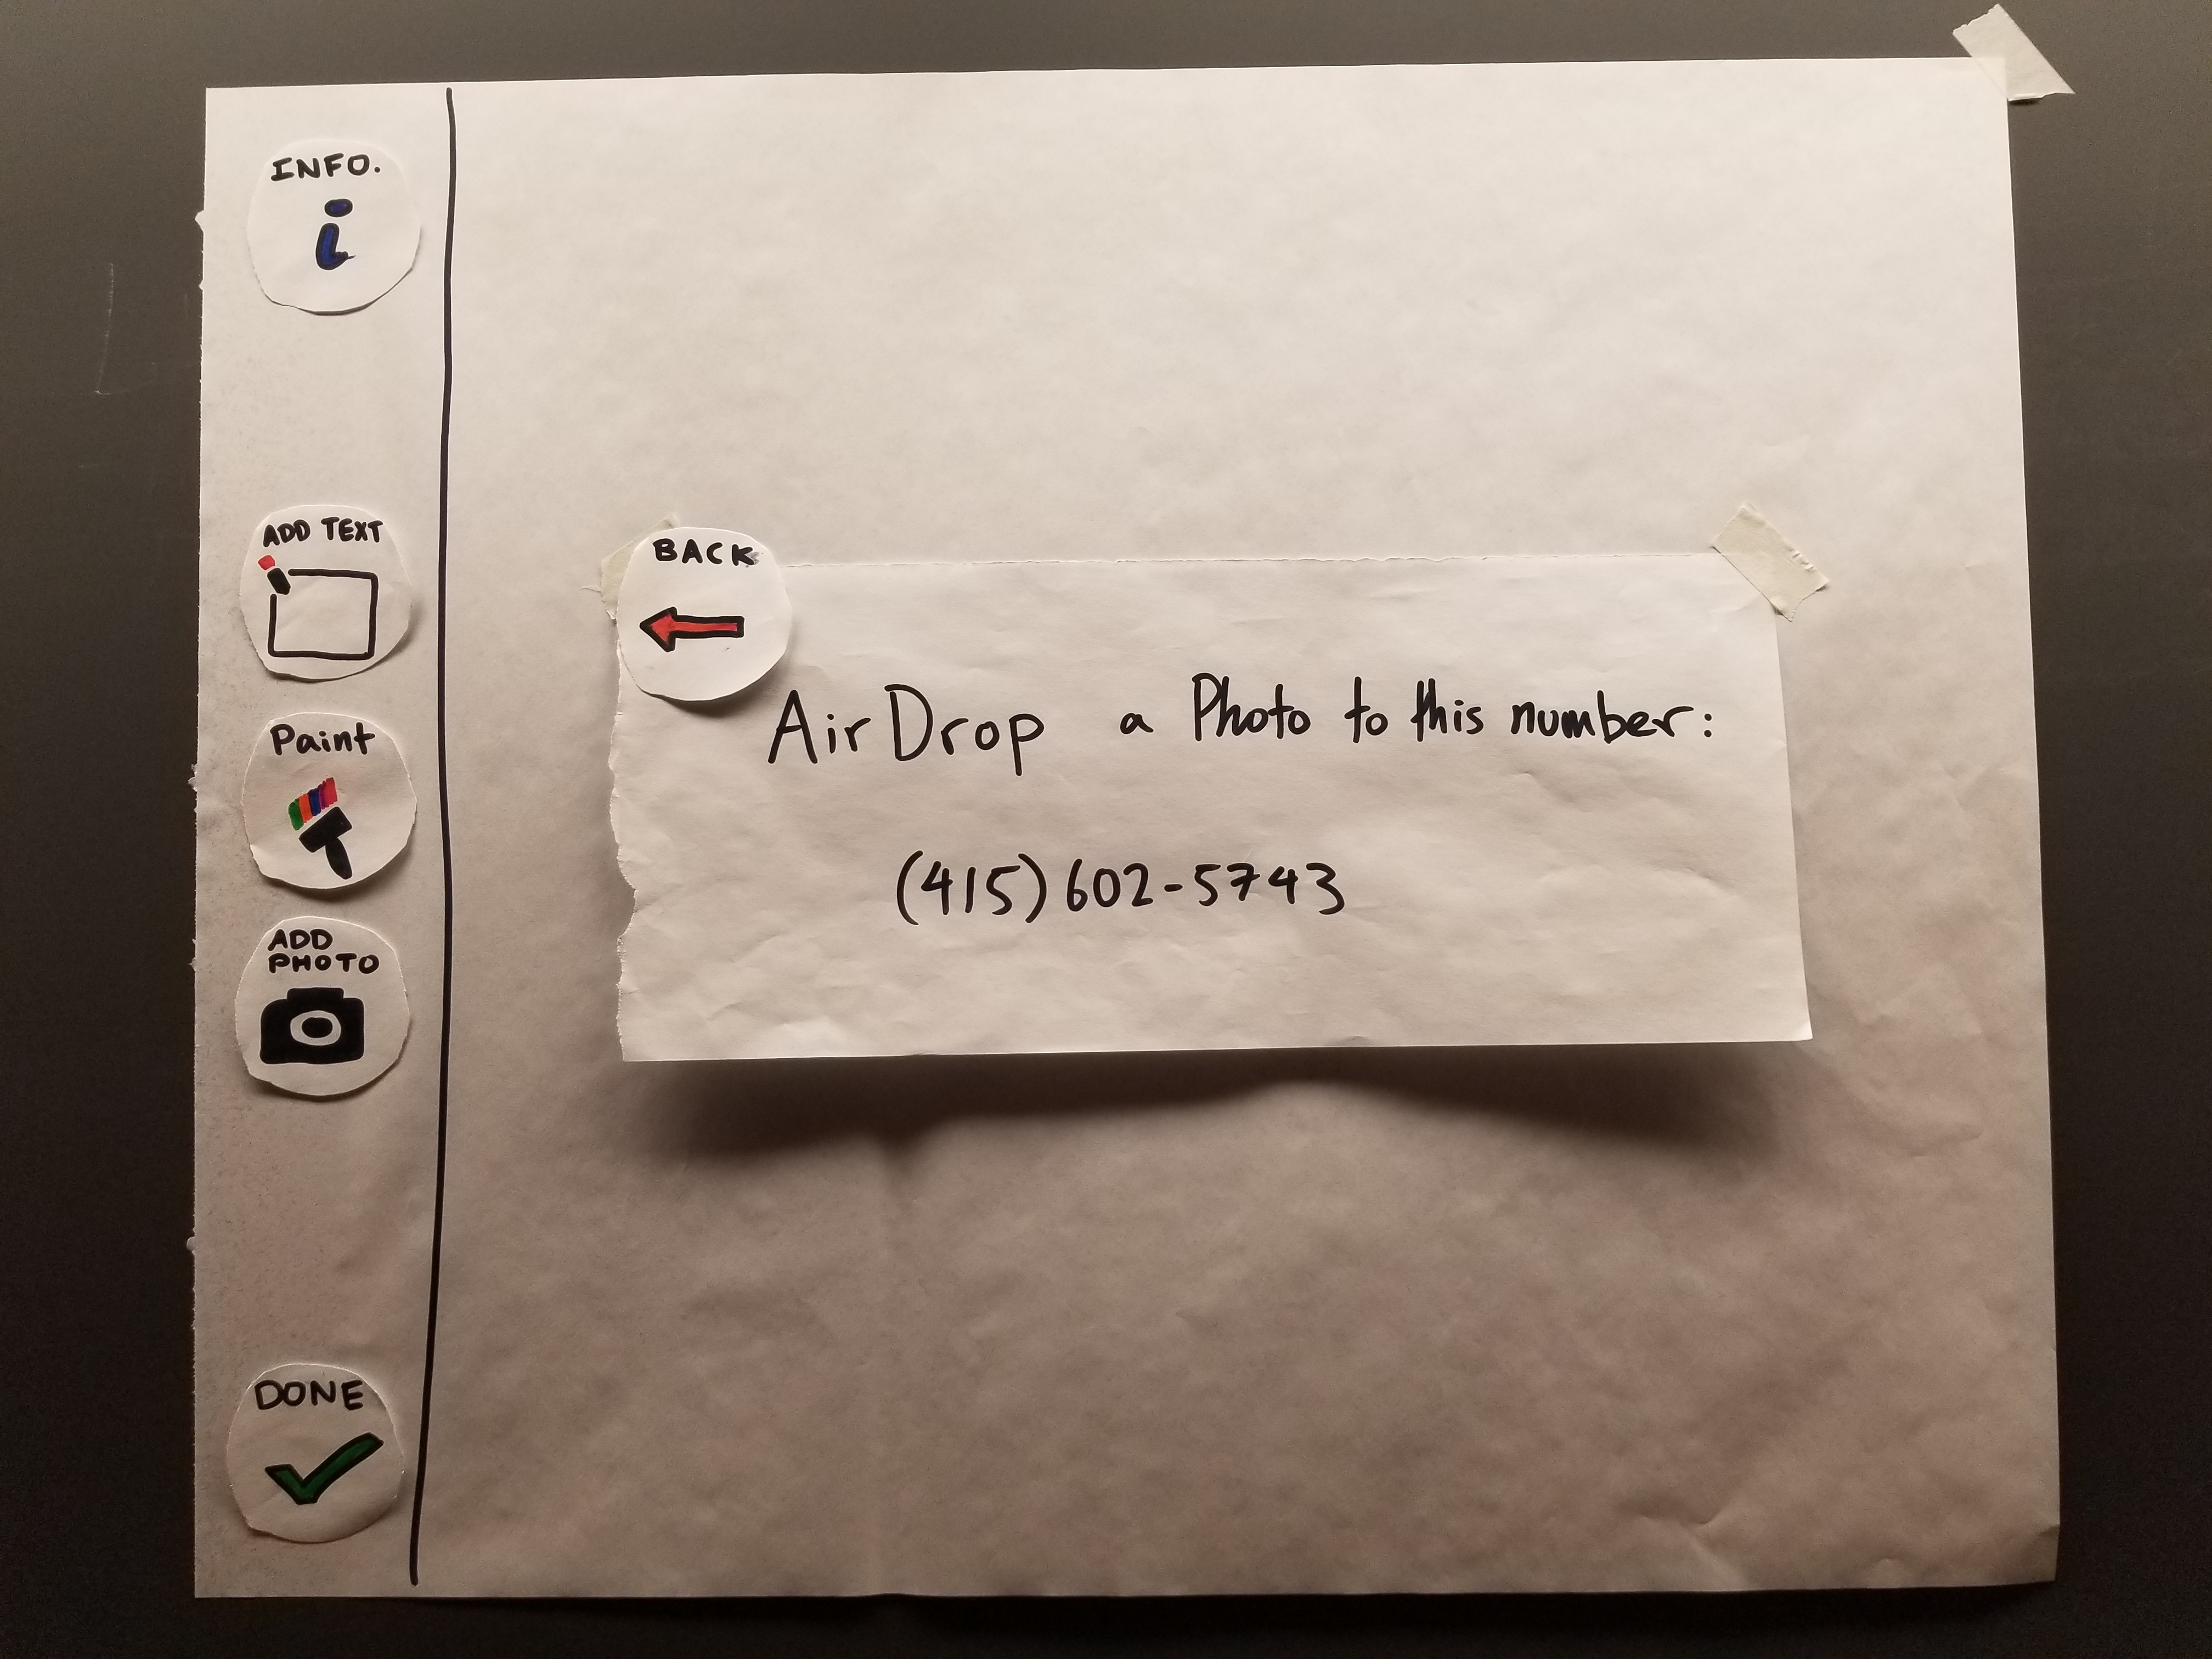 INFO.
i
ADD TEXT
Paint
ADD
PHOTO
DONE
BACK
AirDrop a Photo to this number:
(415) 602-5743